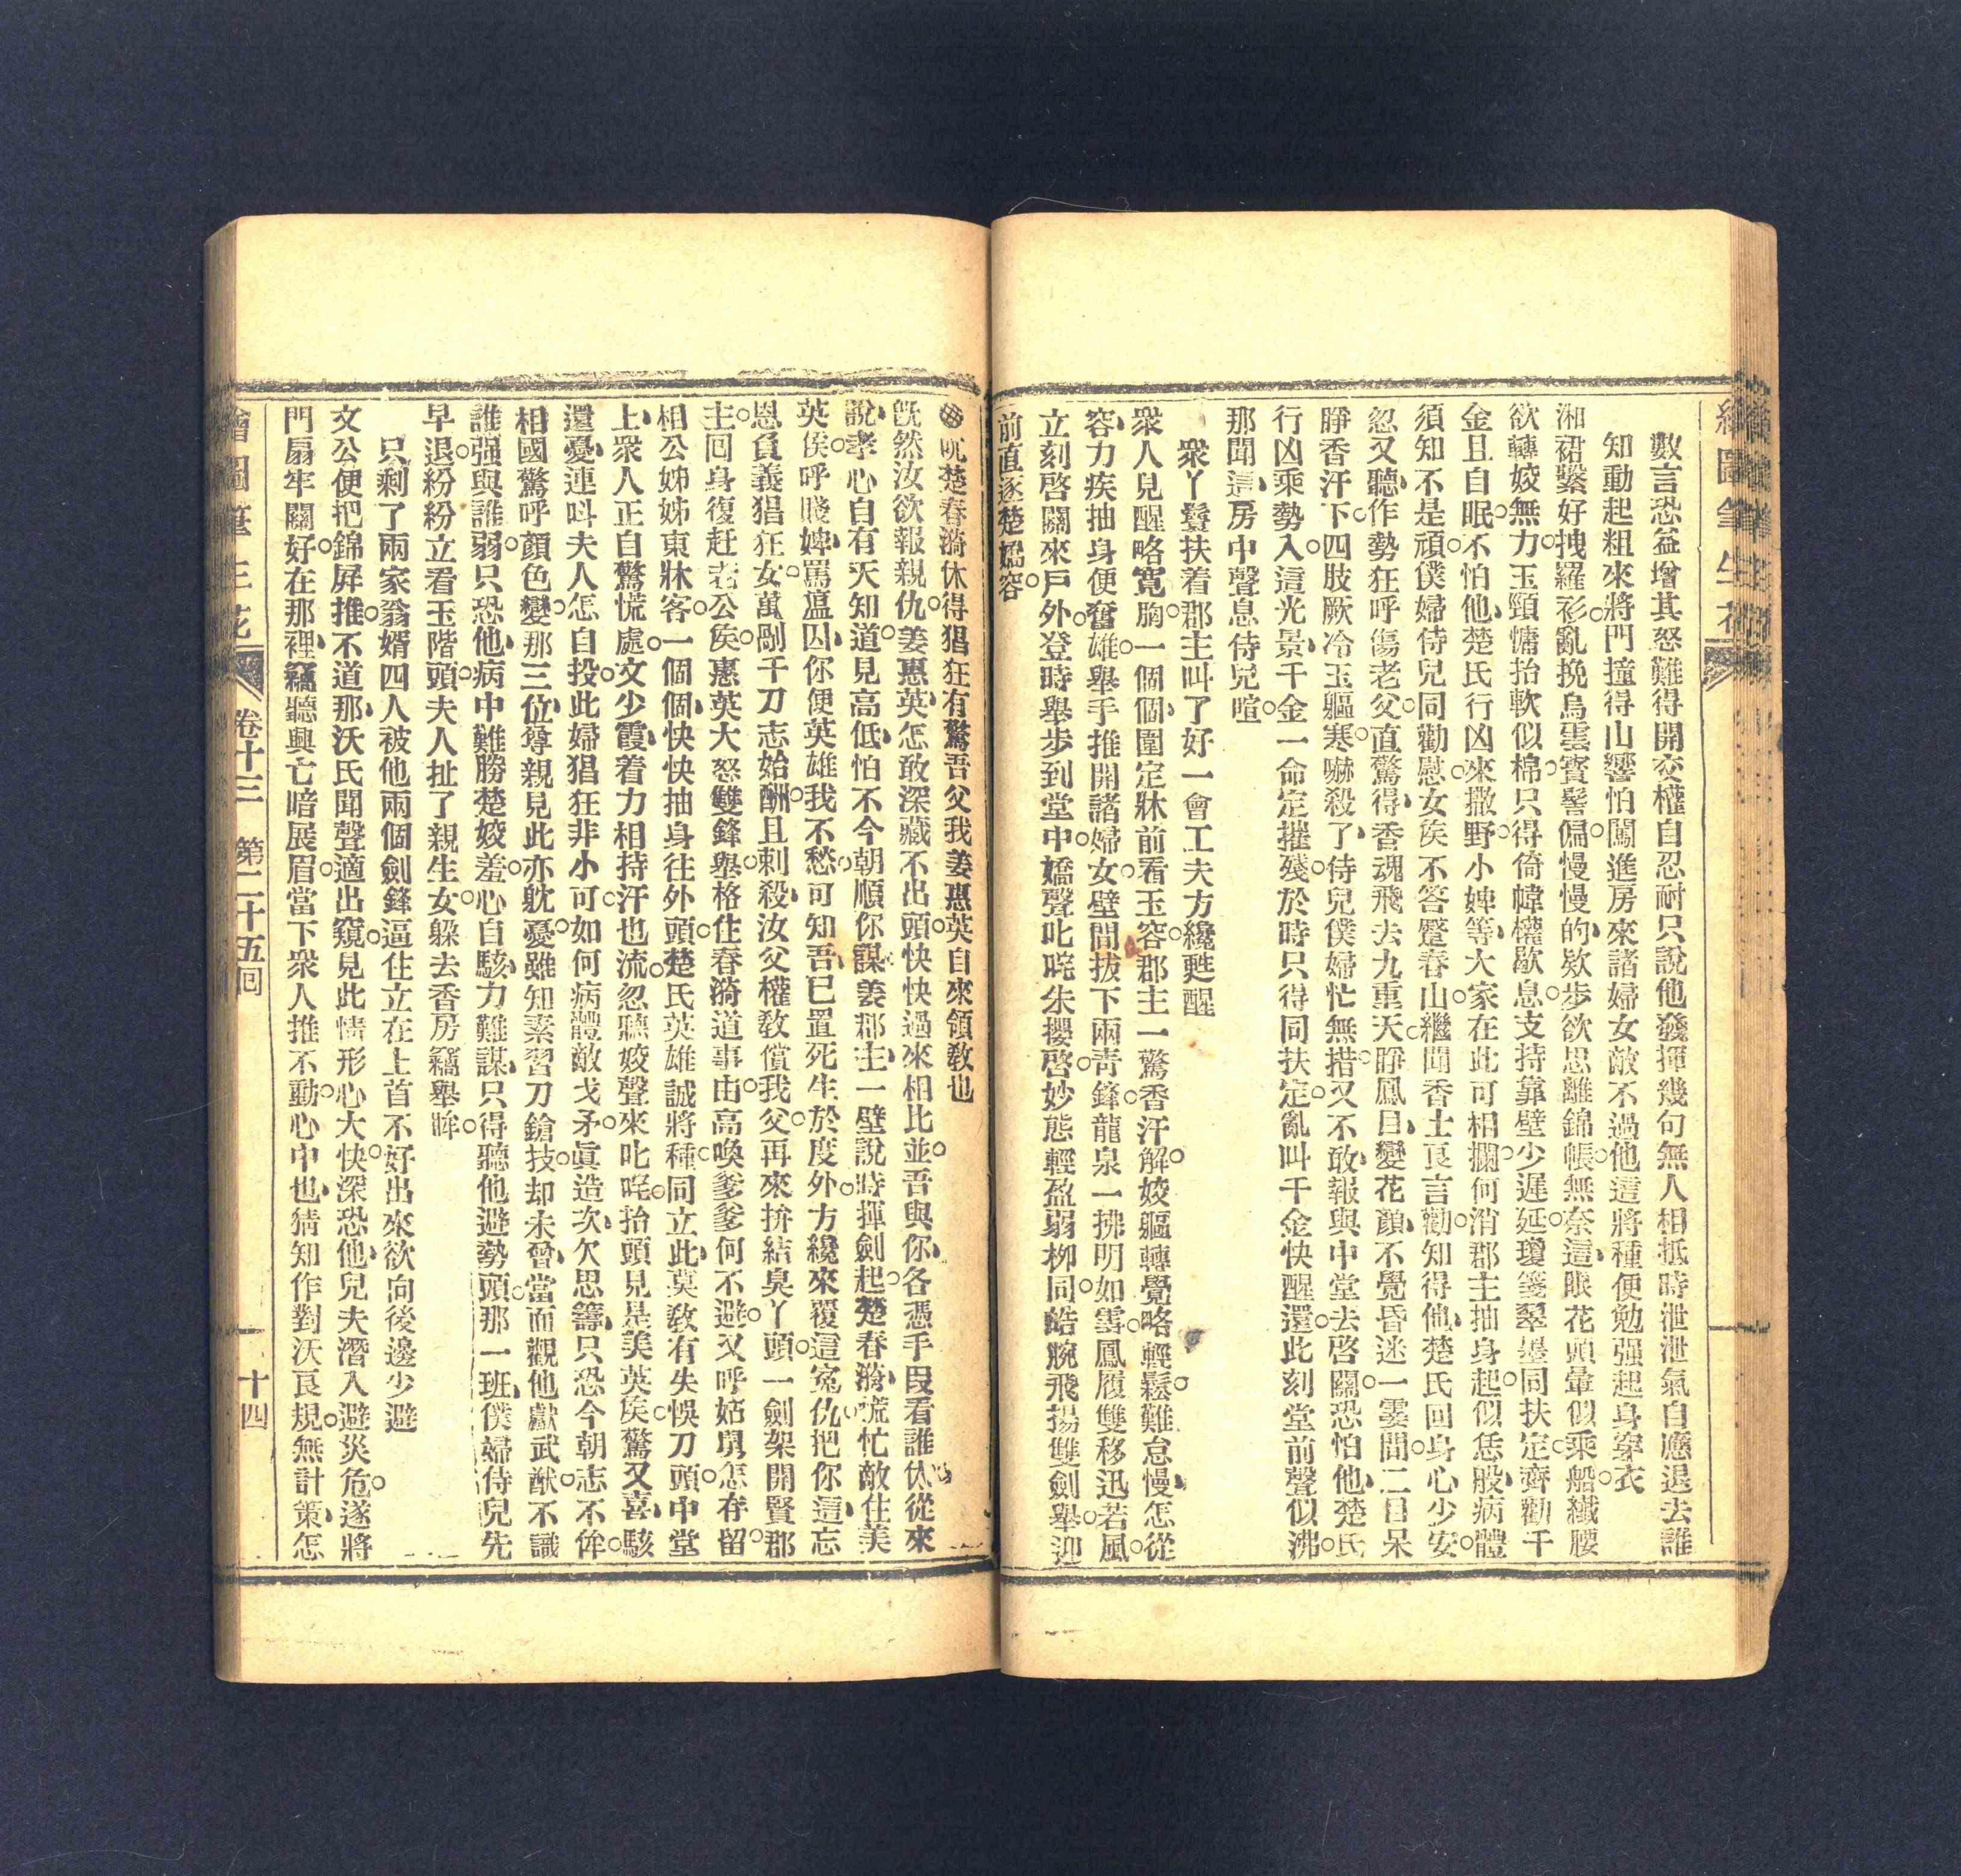 繪圖筆生花
數言恐益增其怒難得開交權自忍耐只說他發揮幾句無人相抵時泄泄氣自應退去誰
知動起粗來將門撞得山響怕闖進房來諸婦女敵不過他這將種便勉强起身穿衣
湘裙繫好拽羅衫○亂挽烏雲賓髻偏○慢慢的欵步欲思離錦帳○無奈這眼花頭暈似乘船○纖腰
欲轉姣無力○玉頸慵抬軟似棉○只得倚幃權歇息○支持靠壁少遲延○瓊箋翠墨同扶定○齊勸千
金且自眠○不怕他楚氏行凶來撒野○小婢等大家在此可相攔○何消郡主抽身起○似恁般病體
須知不是頑○僕婦侍兒同勸慰○女矦不答蹙春山○繼聞香士良言勸○知得他楚氏回身心少安○
忽又聽作勢狂呼傷老父○直驚得香魂飛去九重天○睜鳳目變花顏不覺昏迷一霎間○二目呆
睜香汗下○四肢厥冷玉軀寒○嚇殺了侍兒僕婦忙無措○又不敢報與中堂去啓關○恐怕他楚氏
行凶乘勢入○這光景千金一命定摧殘○於時只得同扶定○亂叫千金快醒還○此刻堂前聲似沸○
那聞這房中聲息侍兒喧○
衆丫鬟扶着郡主叫了好一會工夫方纔甦醒
衆人見醒略寬胸○一個個圍定牀前看玉容○郡主一驚香汗解○姣軀轉覺略輕鬆○難怠慢怎從
容力疾抽身便奮雄○舉手推開諸婦女○壁間拔下兩青鋒○龍泉一拂明如雪○鳳履雙移迅若風○
立刻啓關來戶外○登時舉步到堂中○嬌聲叱咤朱攖啓○妙態輕盈弱栁同○皓腕飛揚雙劍舉○迎
前直逐楚嬌容○
吪楚春漪休得猖狂有驚吾父我姜惠英自來領敎也
旣然汝欲報親仇○姜惠英怎敢深藏不出頭○快快過來相比並○吾與你各憑手段看誰休○從來
說孝心自有天知道○見高低怕不今朝順你謀○姜郡主一壁說時揮劍起○楚春漪慌忙敵住美
英矦○呼賤婢罵瘟囚你便英雄我不愁○可知吾已置死生於度外○方纔來覆這冤仇○把你這忘
恩負義猖狂女○萬剮千刀志始酬○且刺殺汝父權敎償我父○再來拚結臭丫頭○一劍架開賢郡
主○回身復赶老公矦○惠英大怒雙鋒舉○格住春漪道事由○高喚爹爹何不避○又呼姑舅怎存留○
相公姊姊東牀客○一個個快快抽身往外頭○楚氏英雄誠將種○同立此莫敎有失悞刀頭○中堂
上衆人正自驚慌處○文少霞着力相持汗也流○忽聽姣聲來叱咤○抬頭見是美英矦○驚又喜駭
還憂連呌夫人怎自投○此婦猖狂非小可○如何病體敵戈矛○眞造次欠思籌只恐今朝志不侔○
相國驚呼顔色變○那三位尊親見此亦躭憂○雖知素習刀鎗技○却未曾當面觀他獻武猷○不識
誰强與誰弱○只恐他病中難勝楚姣羞○心自駭力難謀只得聽他避勢頭○那一班僕婦侍兒先
早退○紛紛立看玉階頭○夫人扯了親生女○躱去香房竊舉眸○
只剩了兩家翁婿四人被他兩個劍鋒逼住立在上首不好出來欲向後邊少避
文公便把錦屛推○不道那沃氏聞聲適出窺○見此情形心大快○深恐他兒夫潛入避災危○遂將
門扇牢關好○在那裡竊聽興亡暗展眉○當下衆人推不動○心中也猜知作對沃良規○無計策怎
繪圖筆生花 卷十三 第二十五回 十四